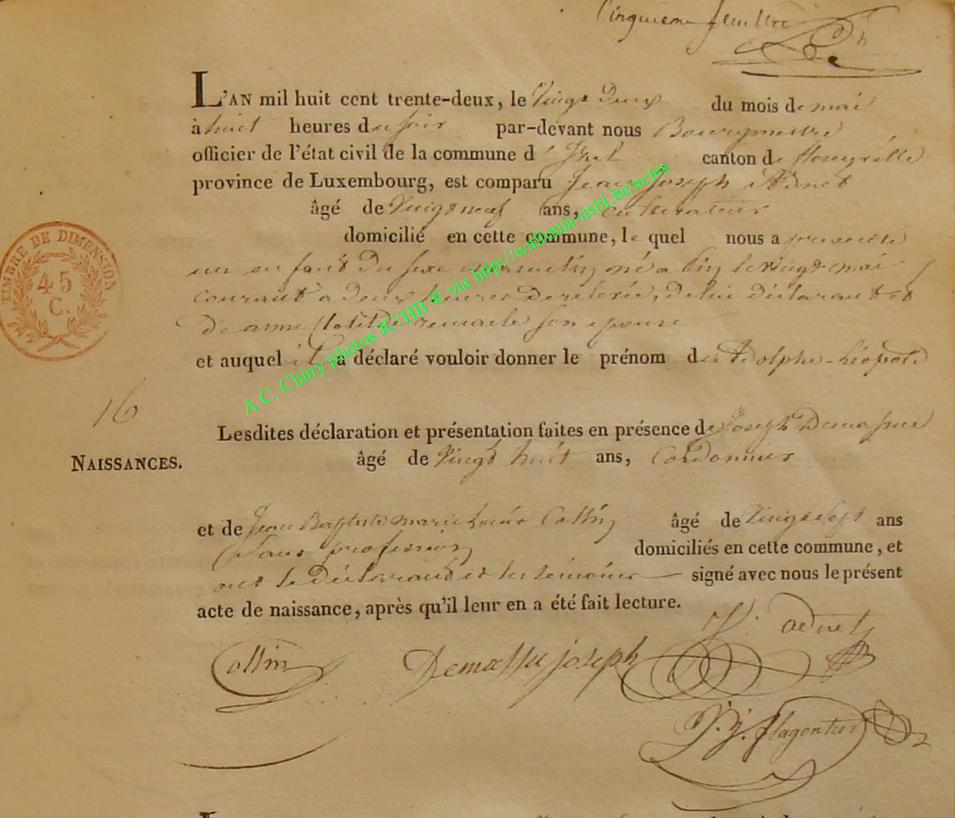 Cinquieme feuillet
L'AN mil huit cent trente-deux, le Vingt Deux du mois de mai
à huit heures du soir par-devant nous Bourgmestre
officier de l'état civil de la commune d'Izel canton de florenville
province de Luxembourg, est comparu Jean Joseph Adnet
âgé de Vingt neuf ans, cultivateur
domicilié en cette commune, le quel nous a presenté
un enfant du sexe masculin né a le vingt mai
courant a deux heures de relevée, de lui déclarant et
de anne Clotilde remacle son epouse
et auquel il a déclaré vouloir donner le prénom de Adolphe-Léopold
16
Lesdites déclaration et présentation faites en présence de Joseph Demasseu
NAISSANCES.
âgé de Vingt huit ans, Cordonnier
et de Jean Baptiste marie Collin âgé de Vingt Sept ans
Sans profession domiciliés en cette commune, et
ont le Déclarant et les témoins signé avec nous le présent
acte de naissance, après qu'il leur en a été fait lecture.
Collin Demasseu joseph J. adnet
flagontier
TIMBRE DE DIMENSION
45
C.
A.C. Chiny photos K./HB © via http://wallonia-asbl.be/actes